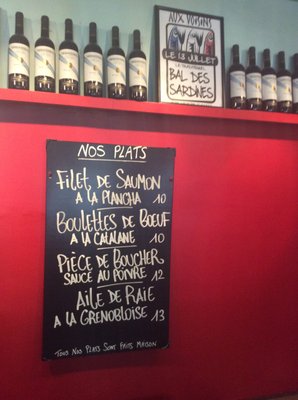 AUX VOISINS
LE 13 JUILLET
BAL DES
SARDINES
NOS PLATS
FILET DE SAUMON
A LA PLANCHA 10
BOULETTES DE BOEUF
A LA CATALANE 10
PIÈCE DE BOUCHER
SAUCE AU POIVRE 12
AILE DE RAIE
A LA GRENOBLOISE 13
TOUS NOS PLATS SONT FAITS MAISON